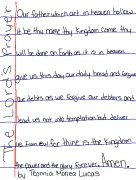 The Lord's Prayer
Our father which art in heaven hallow
it be thy name thy Kingdom come thy
will be done on Earth as it is in heaven
give us this day our daily bread and forgive
our debtrs as we forgive our debtors and
lead us not into temptation but deliver
us from evil for thine is the Kingdom
the power and the glory forever, Amen.
by Teonnia Monea Lucas